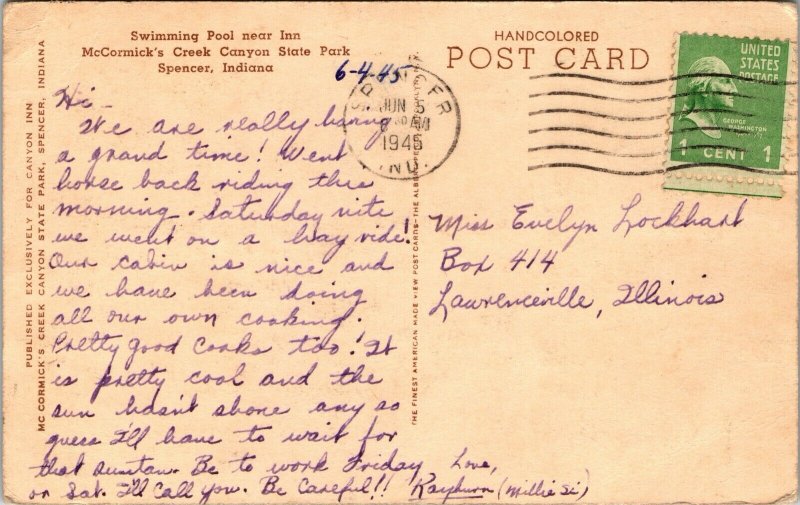 Swimming Pool near Inn
McCormick's Creek Canyon State Park
Spencer, Indiana
HANDCOLORED
POST CARD
6-4-45
SPENCER
JUN 5
1945
IND.
UNITED
STATES
POSTAGE
GEORGE
WASHINGTON
1 CENT 1
PUBLISHED EXCLUSIVELY FOR CANYON INN
MCCORMICK'S CREEK CANYON STATE PARK, SPENCER, INDIANA
Hi-
We are really having
a grand time! Went
horse back riding this
morning. Saturday nite
we went on a hay ride!
Our cabin is nice and
we have been doing
all our own cooking.
Pretty good cooks too! It
is pretty cool and the
sun hasn't shone any so
guess I'll have to wait for
that suntan. Be to work Friday
or Sat. I'll call you. Be Careful!!
Love,
Rayburn (Millie Si)
THE FINEST AMERICAN MADE VIEW POST CARDS-THE ALBERTYPE
Miss Evelyn Lockhart
Box 414
Lawrenceville, Illinois